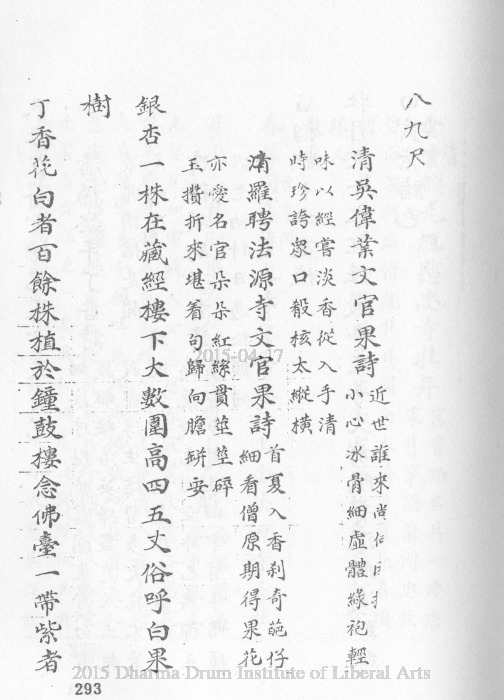 八九尺
清吳偉業文官果詩
近世誰來尚
小心冰骨細虛體綠袍輕
味以經嘗淡香從入手清
時珍誇衆口殽核太縱橫
清羅聘法源寺文官果詩
首夏入香刹奇葩仔
細看僧原期得果花
亦愛名官朵朵紅絲貫莖莖碎
玉攢折來堪着句歸向膽缾安
銀杏一株在藏經樓下大數圍高四五丈俗呼白果
樹
丁香花白者百餘株植於鐘鼓樓念佛臺一帶紫者
2015-04-17
2015 Dharma Drum Institute of Liberal Arts
293